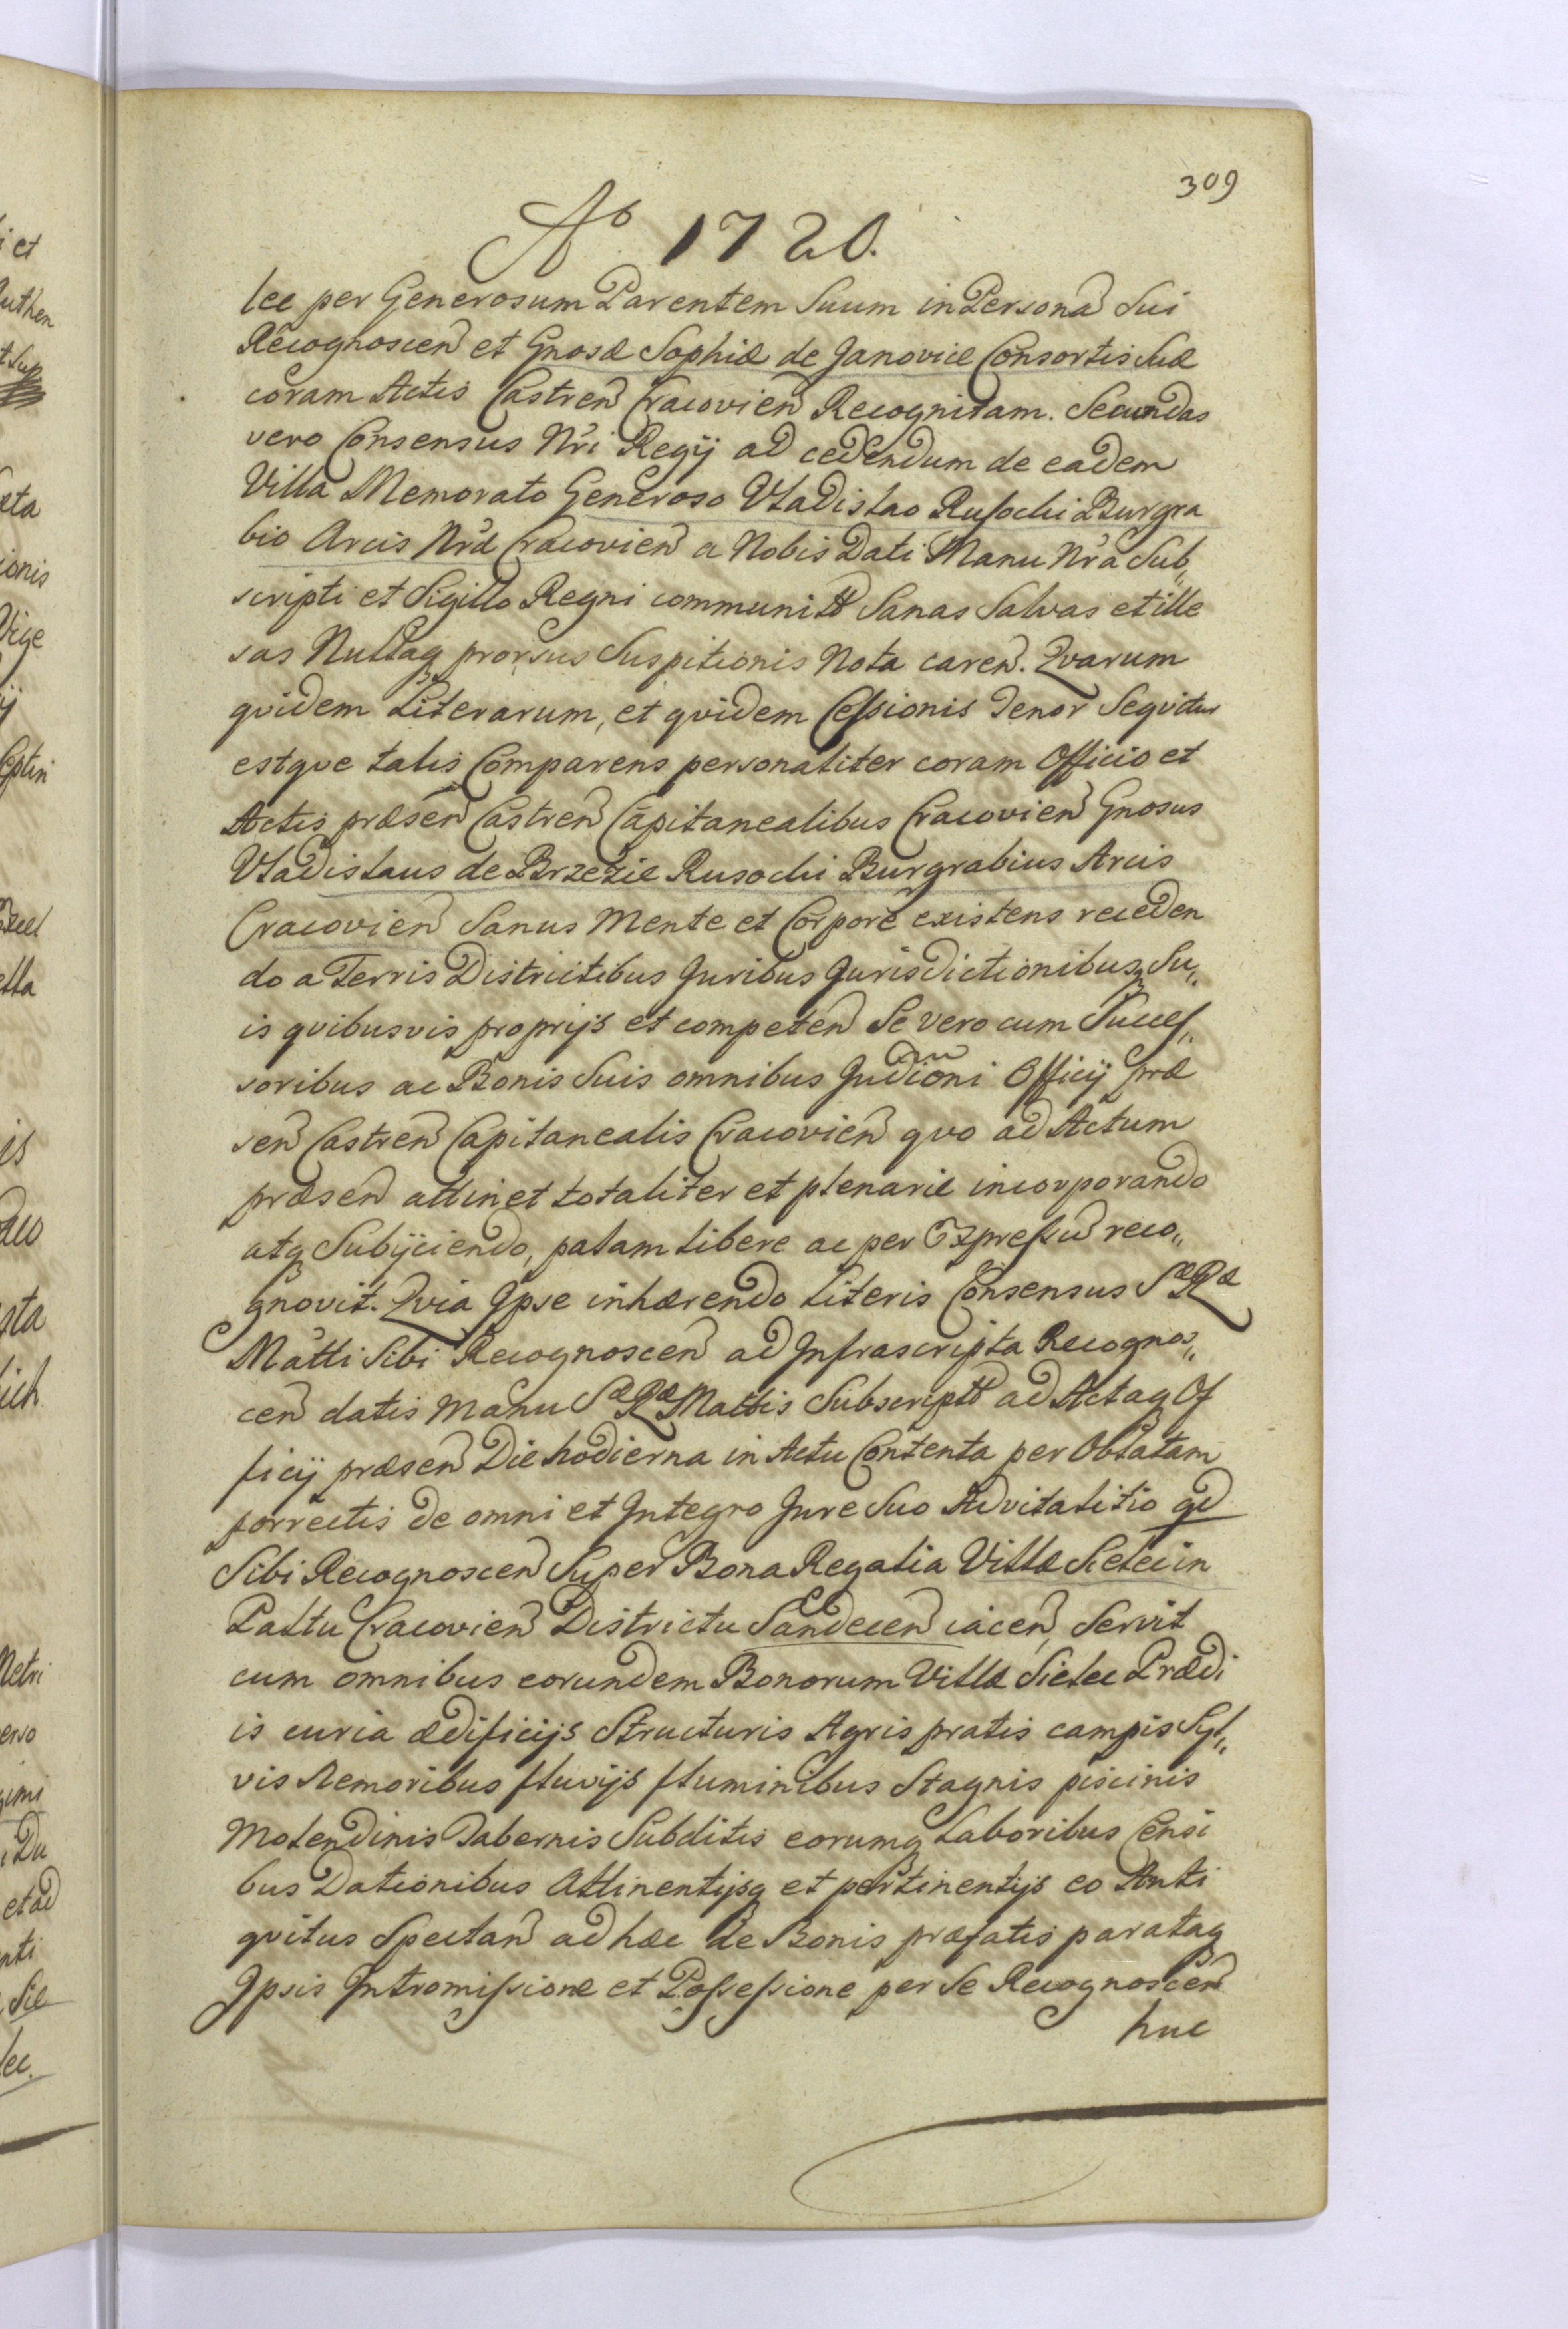 309
Aº 1720.
lec per Generosum Parentem Suum in Persona Sui
Recognoscen et Gnosæ Sophiæ de Janovice Consortis Suæ
coram Actis Castren Cracovien Recognitam. Secundas
vero Consensus Nri Regij ad cedendum de eadem
Villa Memorato Generoso Vladislao Rusocki Burgra
bio Arcis Nræ Cracovien a Nobis Dati Manu Nra Sub„
scripti et Sigillo Regni communitt Sanas Salvas et ille
sas Nullaq prorsus Suspitionis Nota caren. Qvarum
qvidem Literarum, et qvidem Cessionis Tenor Seqvitur
estqve talis Comparens personaliter coram Officio et
Actis præsen Castren Capitanealibus Cracovien Gnosus
Vladislaus de Brzezie Rusocki Burgrabius Arcis
Cracovien Sanus Mente et Corpore existens receden
do a Terris Districtibus Juribus Jurisdictionibusq Su„
is qvibusvis proprijs et competen Se vero cum Succes„
soribus ac Bonis Suis omnibus Judicioni Officij præ
sen Castren Capitanealis Cracovien qvo ad Actum
præsen attinet totaliter et plenarie incorporando
atq Subijciendo, palam libere ac per Expressu reco„
gnovit. Qvia Ipse inhærendo Literis Consensus Sæ Ræ
Matti Sibi Recognoscen ad Infrascripta Recognos„
cen datis Manu Sæ Ræ Mattis Subscriptt ad Actaq Of
ficij præsen Die hodierna in Actu Contenta per Oblatam
porrectis de omni et Integro Jure Suo Advitalitio qd
Sibi Recognoscen Super Bona Regalia Villæ Sielec in
Paltu Cracovien Districtu Sandecen iacen, Servit
cum omnibus eorundem Bonorum Villæ Sielec Prædi
is curia ædificijs Structuris Agris pratis campis Syl„
vis Nemoribus fluvijs fluminibus Stagnis piscinis
Molendinis Tabernis Subditis eorumq Laboribus Censi
bus Dationibus Attinentijsq et pertinentijs eo Anti
qvitus Spectan ad hæc de Bonis præfatis parataq
Ipsis Intromissione et Possessione per Se Recognoscen
huc